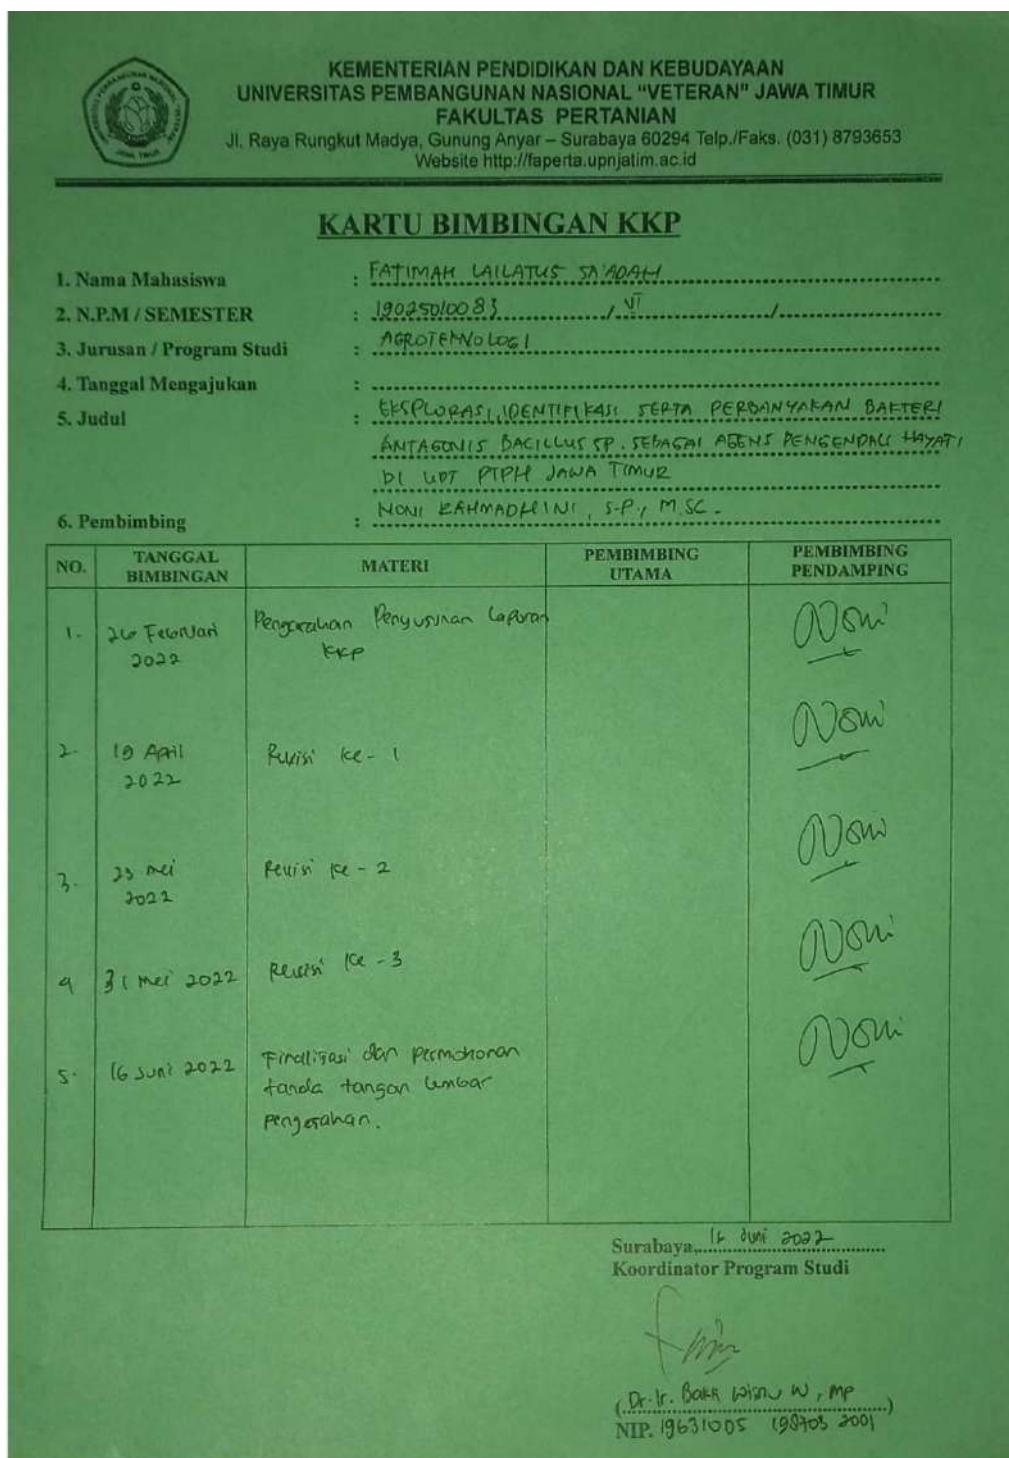 KEMENTERIAN PENDIDIKAN DAN KEBUDAYAAN
UNIVERSITAS PEMBANGUNAN NASIONAL "VETERAN" JAWA TIMUR
FAKULTAS PERTANIAN
Jl. Raya Rungkut Madya, Gunung Anyar – Surabaya 60294 Telp./Faks. (031) 8793653
Website http://faperta.upnjatim.ac.id
KARTU BIMBINGAN KKP
1. Nama Mahasiswa : FATIMAH LAILATUS SA'ADAH
2. N.P.M / SEMESTER : 19025010083 / VI /
3. Jurusan / Program Studi : AGROTEKNOLOGI
4. Tanggal Mengajukan :
5. Judul : EKSPLORASI, IDENTIFIKASI SERTA PERBANYAKAN BAKTERI
ANTAGONIS BACILLUS SP. SEBAGAI AGENS PENGENDALI HAYATI
DI UPT PTPH JAWA TIMUR
6. Pembimbing : NONI RAHMADHINI, S.P., M.SC.
NO. TANGGAL BIMBINGAN MATERI PEMBIMBING UTAMA PEMBIMBING PENDAMPING
1. 26 Februari 2022 Pengarahan Penyusunan Laporan KKP Noni
2. 19 April 2022 Revisi ke - 1 Noni
3. 23 Mei 2022 Revisi ke - 2 Noni
4 31 Mei 2022 Revisi ke - 3 Noni
5. 16 Juni 2022 Finalisasi dan permohonan tanda tangan lembar pengesahan. Noni
Surabaya, 16 Juni 2022
Koordinator Program Studi
(Dr. Ir. Bakti Wisnu W, MP)
NIP. 19631005 198703 2001